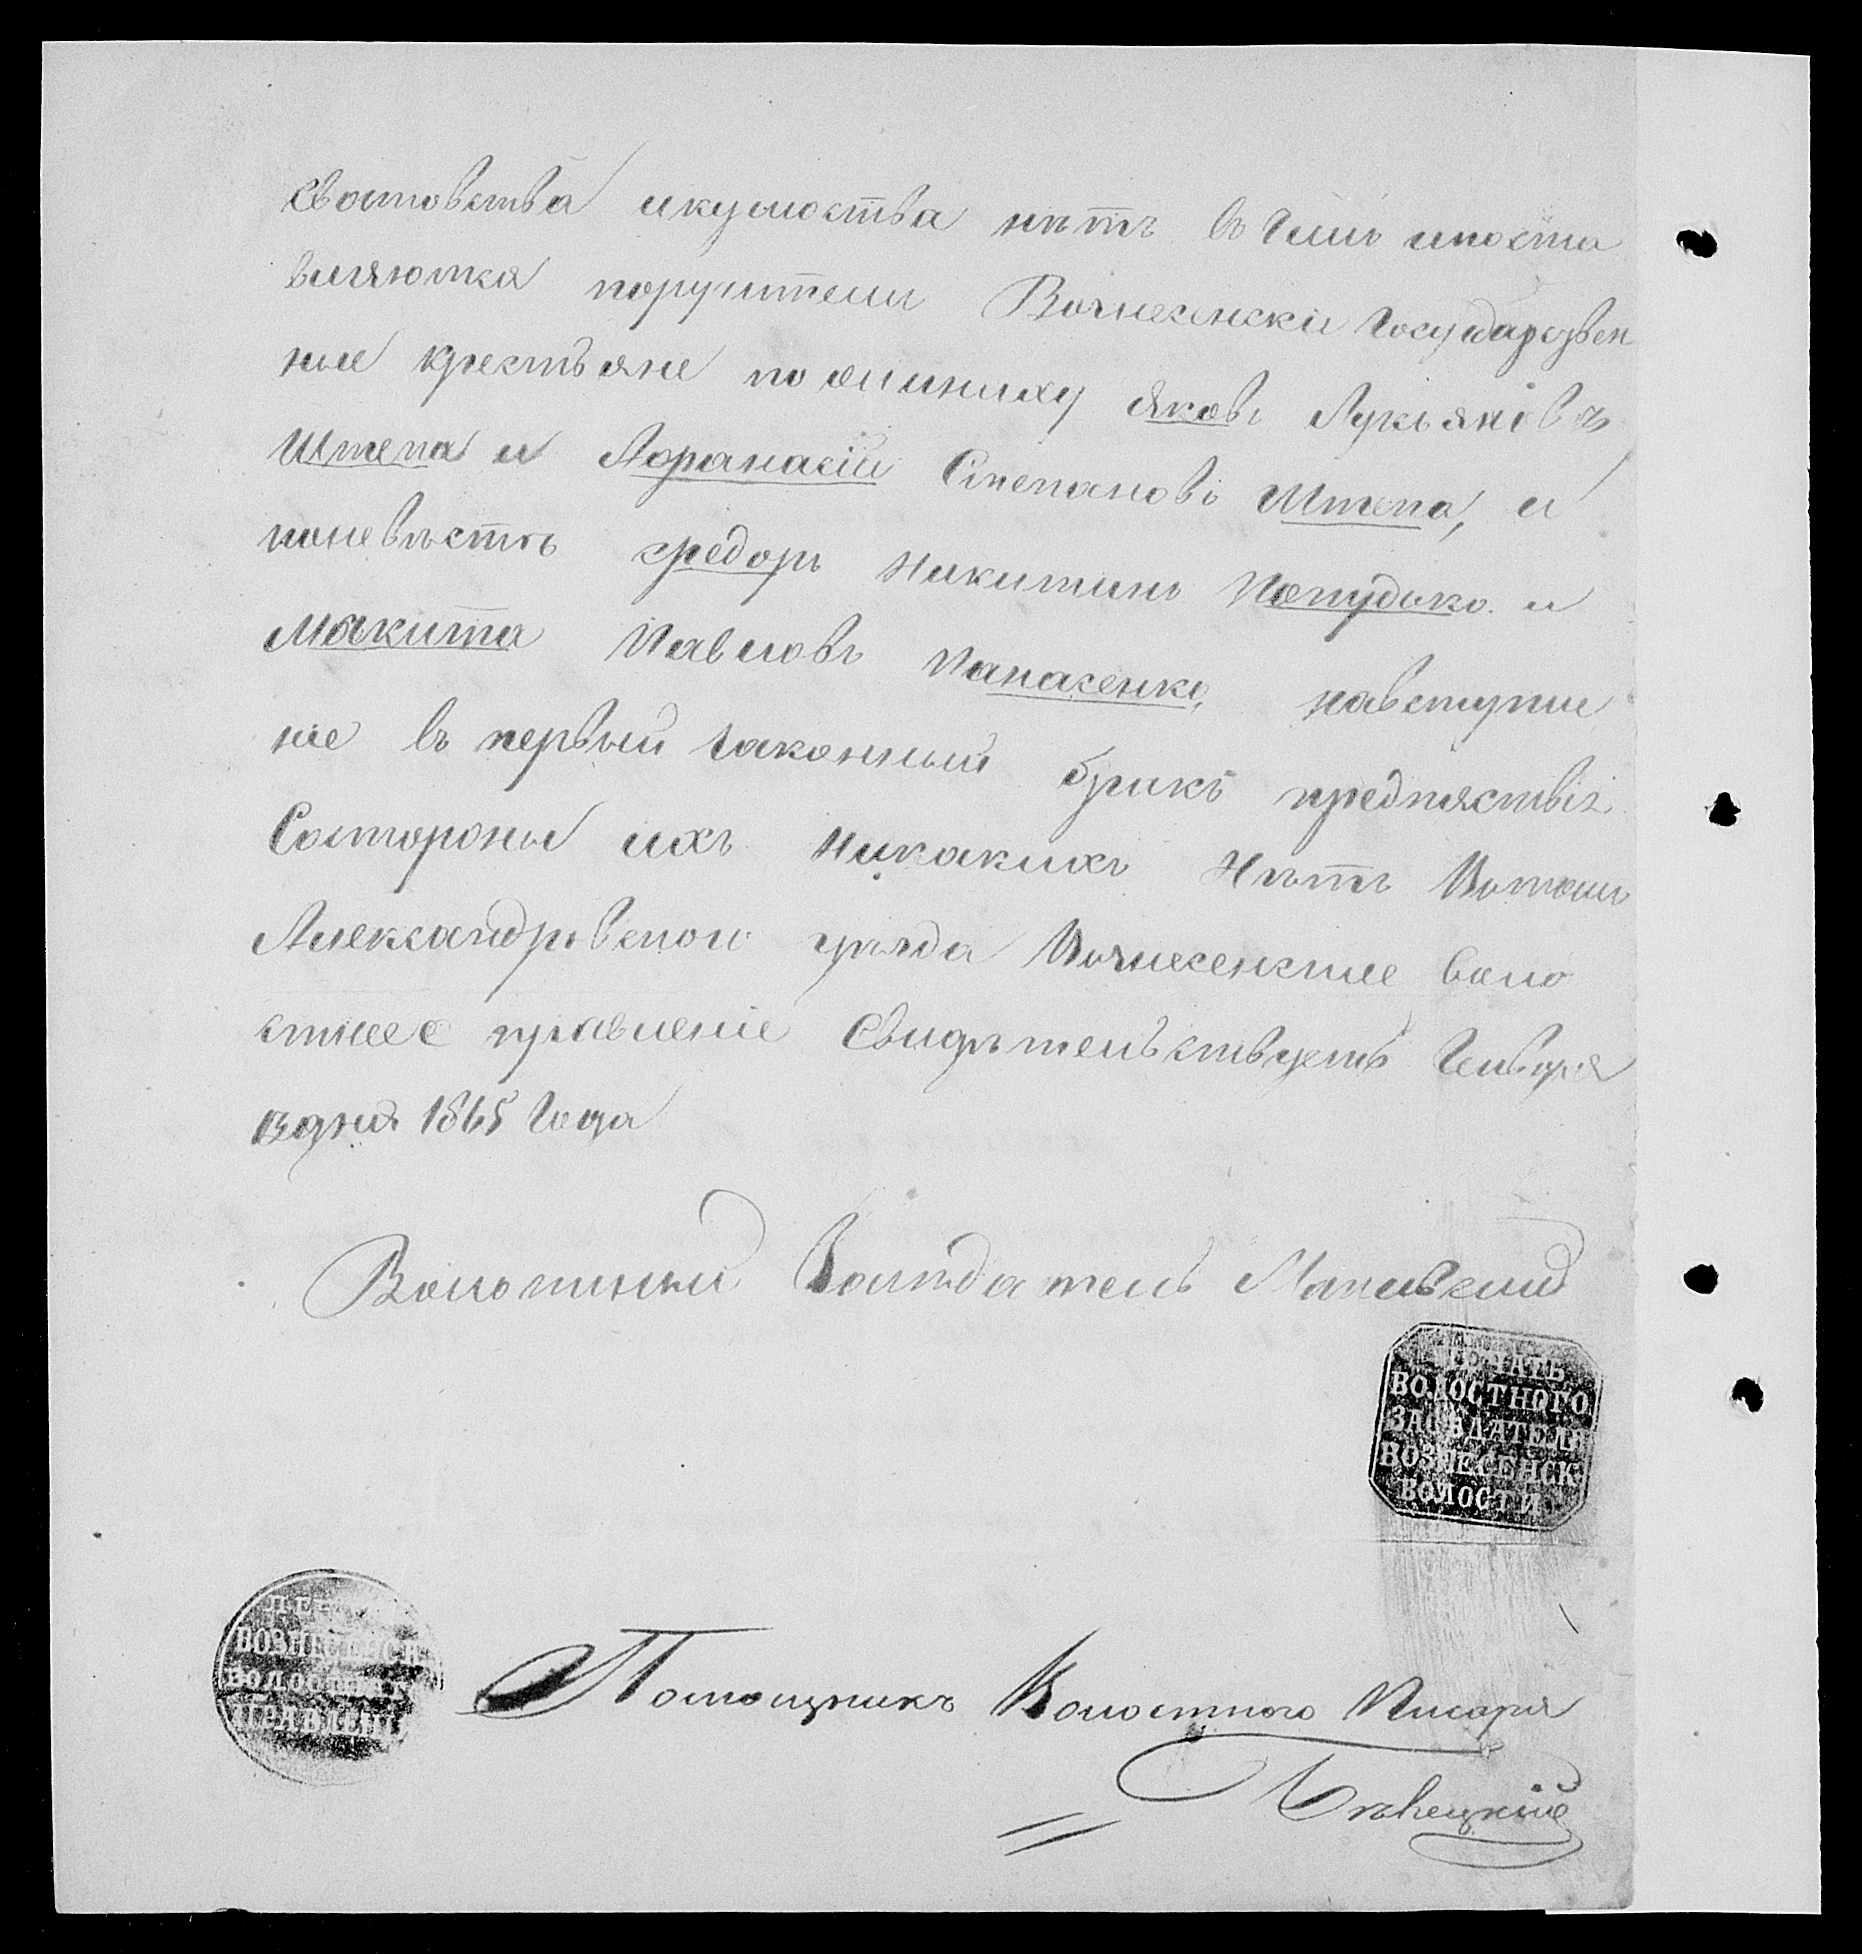 сватовства икумоства нѣтъ въ чемъ ипоста
вляются поручители Вознесенскіе Государствен
ные крестьяне пожениху Яковъ Лукьяновъ
Штепа и Афанасій Степановъ Штепа, и
поневѣстѣ Федоръ Никитинъ Попудько и
Макита Павловъ Панасенко, навступле
ніе въ первый законный бракъ предпяствія
Состороны ихъ Никакихъ Нѣтъ Вотомъ
Александровского уѣзда Вознесенское воло
стное правленіе Свидѣтельствуетъ Генваря
дня 1865 Года
Волостный Засѣдатель
ПЕЧАТЬ
ВОЛОСТНОГО
ЗАСѢДАТЕЛЯ
ВОЗНЕСЕНСК
ВОЛОСТИ
ВОЗНЕСЕНСК
ВОЛОСТНАГ
ПРАВЛЕНІ
Помощникъ Волостного Писаря